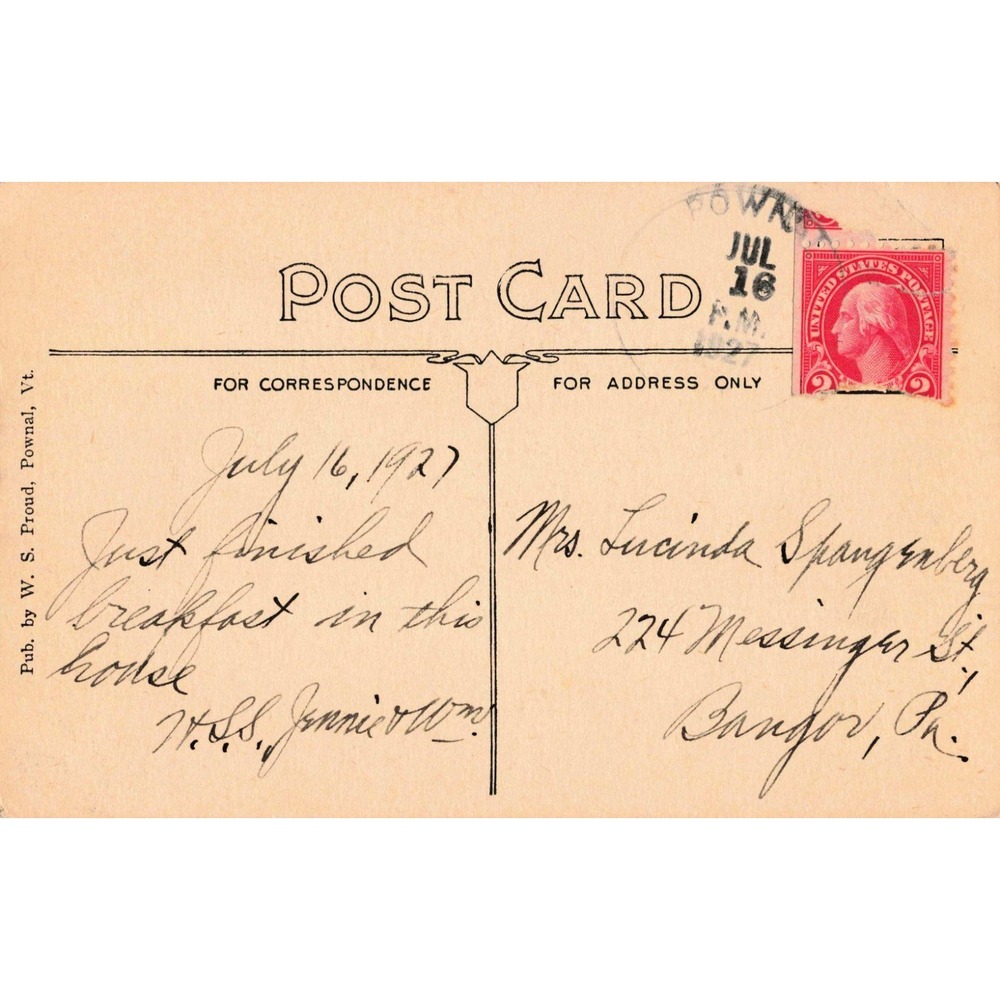 POWNAL
JUL
16
P.M.
1927
UNITED STATES POSTAGE
2 2
POST CARD
FOR CORRESPONDENCE
FOR ADDRESS ONLY
Pub. by W. S. Proud, Pownal, Vt.
July 16, 1927
Just finished
breakfast in this
house
H.S.S., Jennie & Wm.
Mrs. Lucinda Spangenberg
224 Messinger St.,
Bangor, Pa.